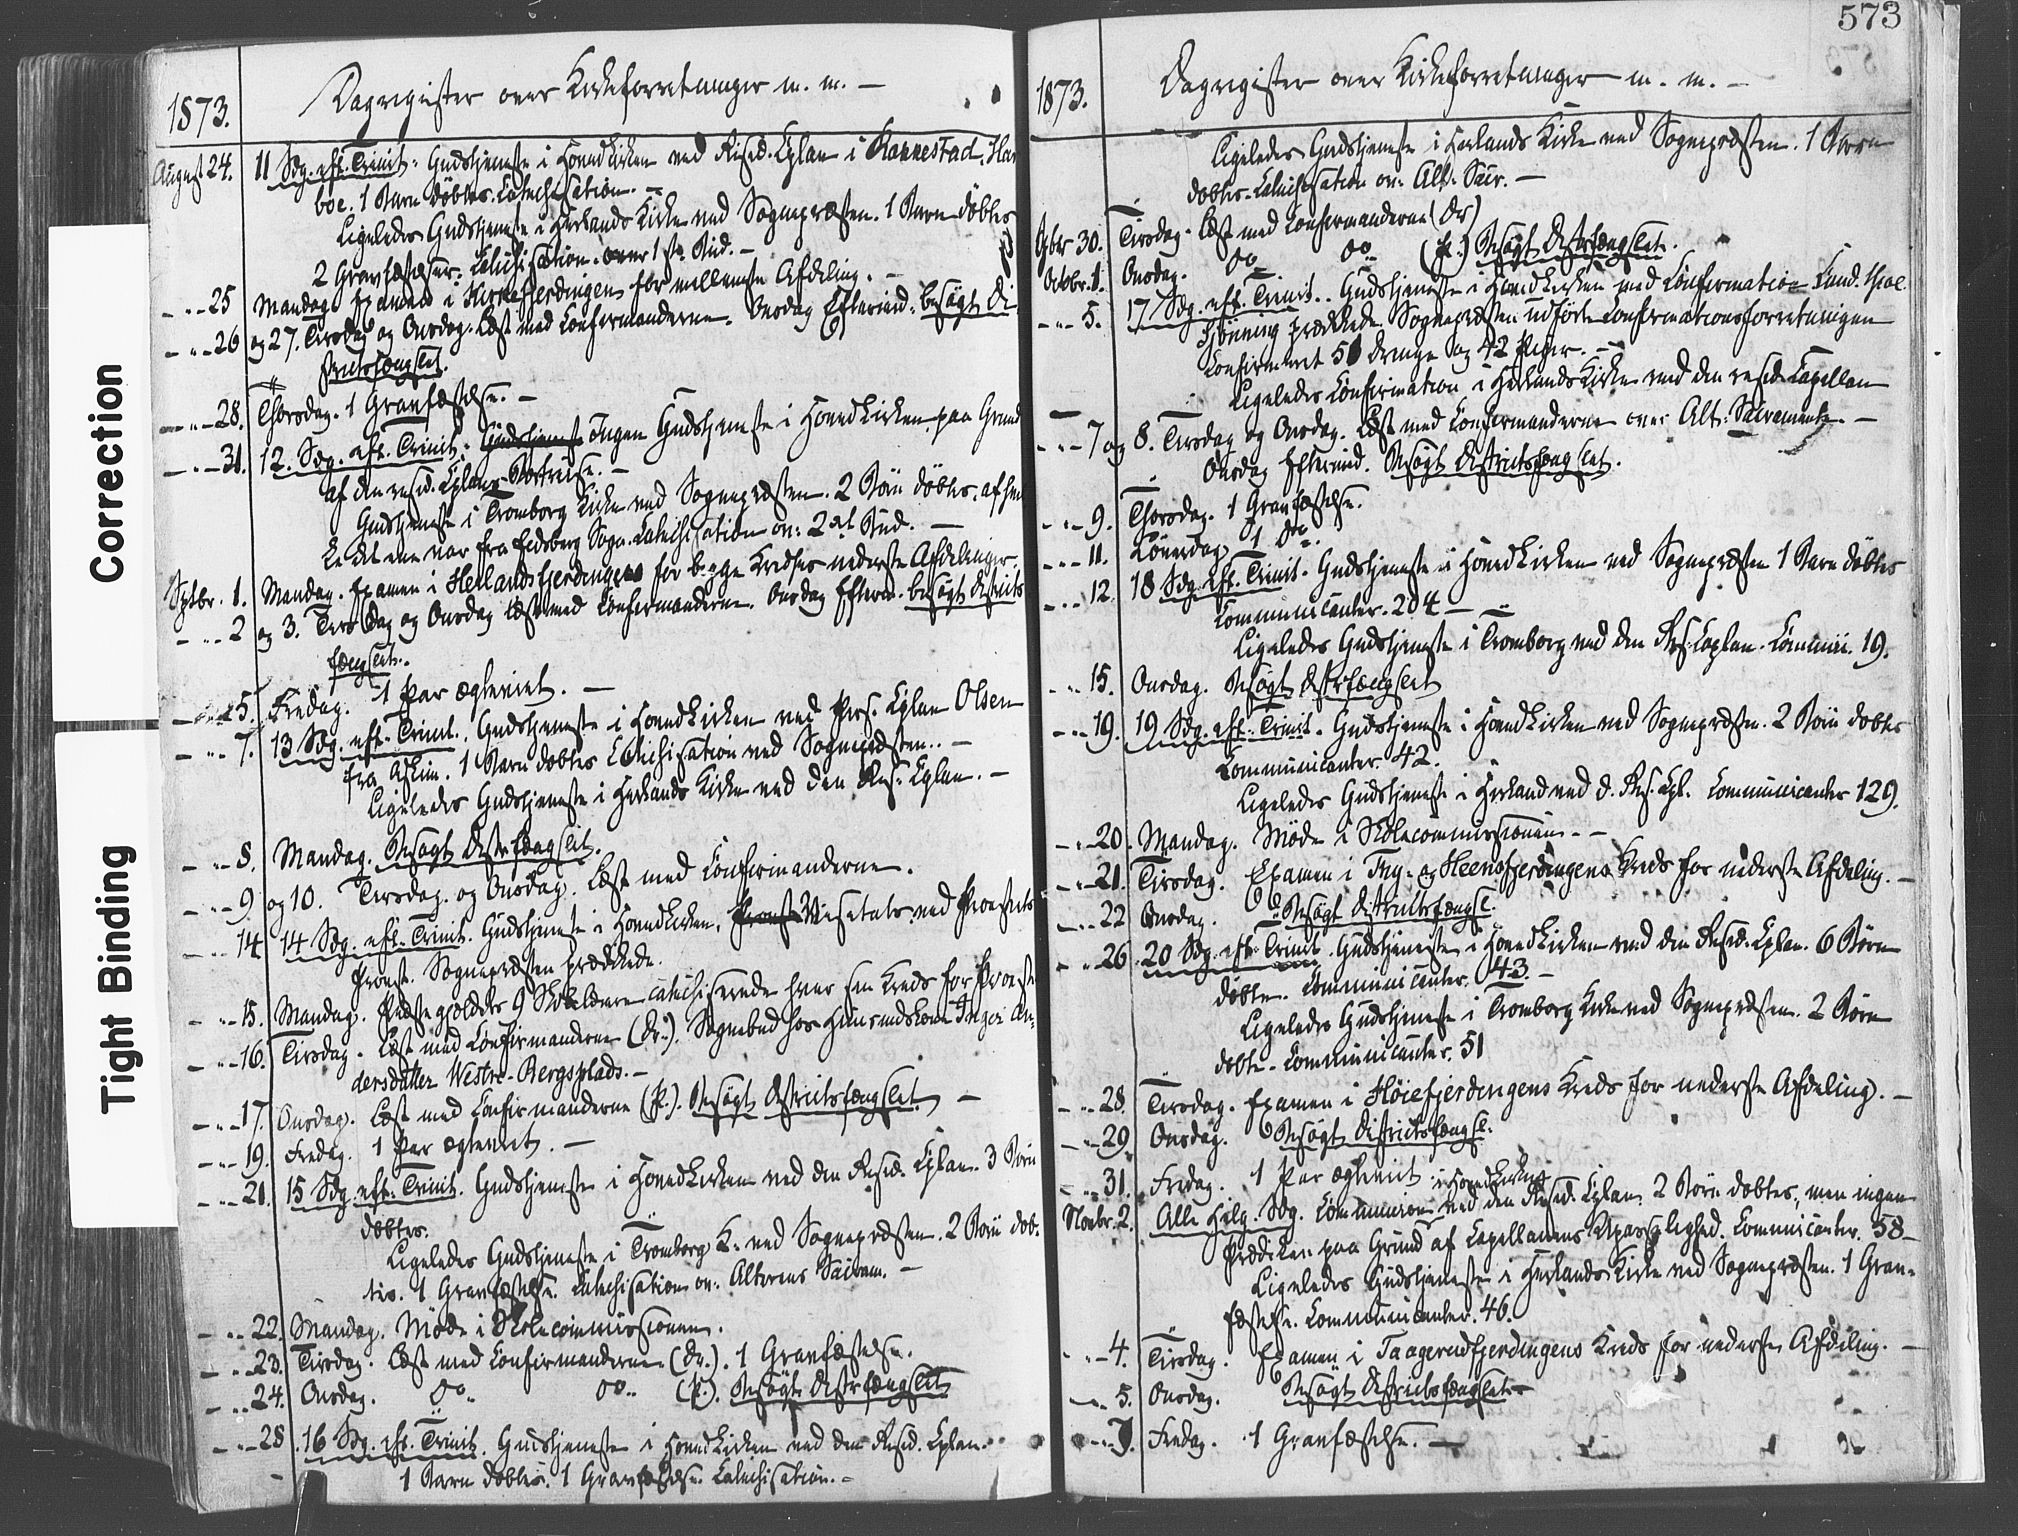 Correction
Tight Binding
1873. Dagregister over Kirkeforretninger m. m. —
August 24. 11 Sdg. eft. Trinit. Gudstjeneste i Hovedkirken ved Resid. Cplan i Rannestad, Har
boe. 1 Barn döbtes. Catechisation. —
Ligeledes Gudstjeneste i Herlands Kirke ved Sognepræsten. 1 Barn döbtes
2 Gravfæstelser. Catechisation over 1ste Bud. —
— " — 25 Mandag Examen i Kirkefjerdingen for mellemste Afdeling. —
— " — 26 og 27. Tirsdag og Onsdag. Læst med Confirmanderne. Onsdag Eftermid. besögt Di
strictsfængslet.
— " — 28. Thorsdag. 1 Gravfæstelse. —
— " — 31. 12. Sdg. eft. Trinit. Gudstjeneste ingen Gudstjeneste i Hovedkirken paa Grund
af den resid. Cplans Bortreise. —
Gudstjeneste i Tromborg Kirke ved Sognepræsten. 2 Börn döbtes, af hvil
ke det ene var fra Eidsberg Sogn. Catechisation ov. 2det Bud. —
Septbr. 1. Mandag. Examen i Herlandsfjerdingens for begge Kredses nederste Afdelinger.
— " — 2 og 3. Tirsdag og Onsdag læst med Confirmanderne. Onsdag Efterm. besögt Districts
fængslet.
— " — 5. Fredag. 1 Par ægteviet. —
— " — 7. 13 Sdg. eft. Trinit. Gudstjeneste i Hovedkirken ved Pers. Cplan Olsen
fra Askim. 1 Barn döbtes Catechisation ved Sognepræsten. —
Ligeledes Gudstjeneste i Herlands Kirke ved den Res. Cplan. —
— " — 8. Mandag. Besögt Distrfængslet.
— " — 9 og 10. Tirsdag og Onsdag. Læst med Confirmanderne.
— " — 14 14 Sdg. eft. Trinit. Gudstjeneste i Hovedkirken. Visetats ved
Provst. Sognepræsten prædikede.
— " — 15. Mandag. Præstegjeldets 9 Skolelærere catechiserede hver sin Kreds for Provsten
— " — 16. Tirsdag. Læst med Confirmanderne (Dr.). Sognebud hos Huusmandskone Inger An-
dersdatter Westre-Bergsplads. —
— " — 17. Onsdag. Læst med Confirmanderne (P.). Besögt Districtsfængslet. —
— " — 19. Fredag. 1 Par ægteviet. —
— " — 21. 15 Sdg. eft. Trinit. Gudstjeneste i Hovedkirken ved den Resid. Cplan. 3 Börn
döbtes.
Ligeledes Gudstjeneste i Tromborg K. ved Sognepræsten. 2 Börn döb-
tes. 1 Gravfæstelse. Catechisation ov. Alterens Sacram. —
— " — 22. Mandag. Möde i Skolecommissionen.
— " — 23. Tirsdag. Læst med Confirmanderne (Dr.). 1 Gravfæstelse.
— " — 24. Onsdag. Do Do (P.). Besögt Distrfængslet
— " — 28 16 Sdg. eft. Trinit. Gudstjeneste i Hovedkirken ved den Resid. Cplan.
1 Barn döbtes. 1 Gravfæstelse. Catechisation. —
573
1873. Dagregister over Kirkeforretninger m. m. —
Ligeledes Gudstjeneste i Herlands Kirke ved Sognepræsten. 1 Barn
döbtes. Catechisation ov. Alt. Sacr. —
Spbr 30. Tirsdag. Læst med Confirmanderne (Dr)
Octobr. 1. Onsdag. Do Do (P.) Besögt Distrfængslet.
— " — 5. 17 Sdg. eft. Trinit. Gudstjeneste i Hovedkirken med Confirmation Cand. theol.
prædikede. Sognepræsten udförte Confirmationsforretningen
Confirmeret 51 Drenge og 42 Piger. —
Ligeledes Confirmation i Herlands Kirke ved den resid. Capellan
— " — 7 og 8. Tirsdag og Onsdag. Læst med Confirmanderne over Alt. Sacramente. —
Onsdag Eftermid. Besögt Districtsfængslet.
— " — 9. Thorsdag. 1 Gravfæstelse.
— " — 11. Löverdag 1 do.
— " — 12. 18 Sdg. eft. Trinit. Gudstjeneste i Hovedkirken ved Sognepræsten 1 Barn döbtes
Communicanter. 204 —
Ligeledes Gudstjeneste i Tromborg ved den Res. Caplan. Commun. 19.
— " — 15. Onsdag. Besögt Distrfængslet
— " — 19. 19 Sdg. eft. Trinit. Gudstjeneste i Hovedkirken ved Sognepræsten. 2 Börn döbtes
Communicanter. 42.
Ligeledes Gudstjeneste i Herland ved d. Res. Cpl. Communicanter 129.
— " — 20. Mandag. Möde i Skolecommissionen. —
— " — 21. Tirsdag. Examen i Trg- og Heensfjerdingens Kreds for nederste Afdeling. —
— " — 22 Onsdag. Besögt Districtsfængsl.
— " — 26 20 Sdg. eft. Trinit. Gudstjeneste i Hovedkirken ved den Resid. Cplan. 6 Börn
döbte. Communicanter. 43. —
Ligeledes Gudstjeneste i Tromborg Kirke ved Sognepræsten. 2 Börn
döbte. Communicanter. 51
— " — 28. Tirsdag. Examen i Høiefjerdingens Kreds for nederste Afdeling. —
— " — 29. Onsdag. Besögt Districtsfængsl.
— " — 31. Fredag. 1 Par ægteviet
i Hovedkirken
Novbr. 2. Alle Helg. Sdg. Communion ved den Resid. Cplan. 2 Börn döbtes, men ingen
Prædiken paa Grund af Capellanens Upasselighed. Communicanter. 58 —
Ligeledes Gudstjeneste i Herlands Kirke ved Sognepræsten. 1 Grav-
fæstelse. Communicanter. 46.
— " — 4. Tirsdag. Examen i Taagerudfjerdingens Kreds for nederste Afdeling. —
— " — 5. Onsdag. Besögt Districtsfængslet —
— " — 7. Fredag. 1 Gravfæstelse. —